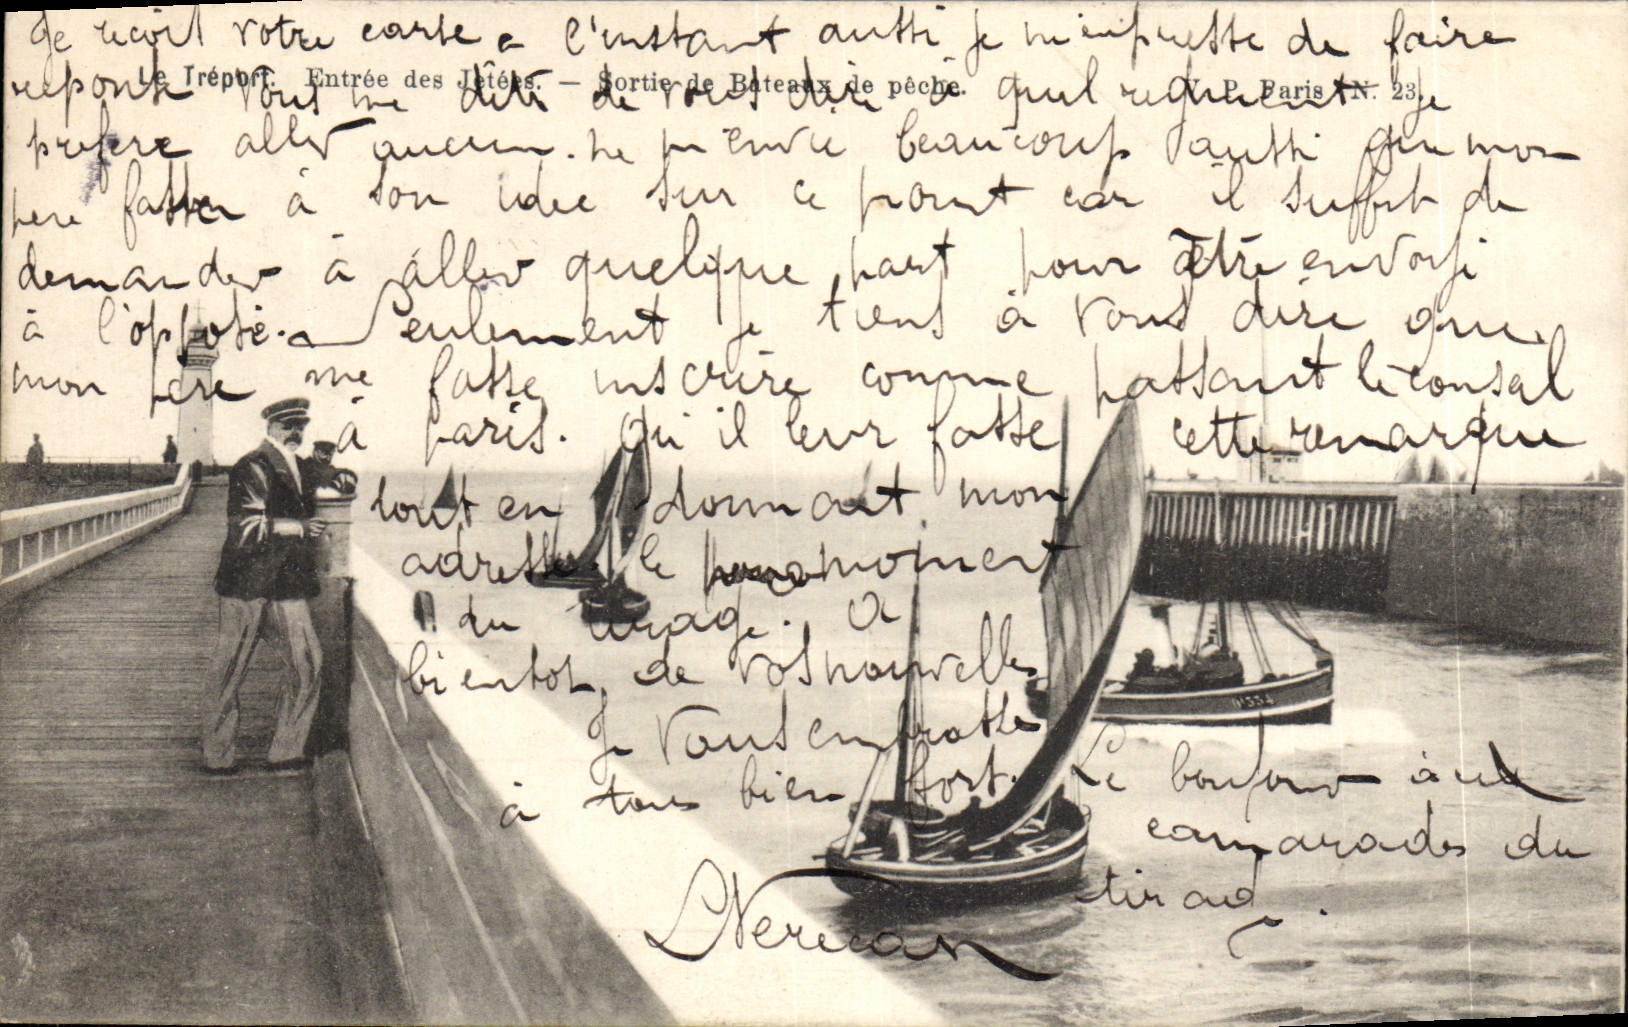 Je recoit votre carte a l'instant aussi je m'empresse de faire
Le Tréport. Entrée des Jetées. — Sortie de Bateaux de pêche. V. P. Paris N. 23
reponse vous me dite de vous dire à quel regiment je
prefere aller aucun. ne m'envie beaucoup aussi que mon
pere fasse à son idee sur ce point car il suffit de
demander à aller quelque part pour être envoyé
à l'opposé. Seulement je tiens à vous dire que
mon pere me fasse inscrire comme passant le conseil
à Paris. Qu'il leur fasse cette remarque
tout en donnant mon
adresse le moment
du tirage. A
bientot de vos nouvelles
Je vous embrasse
à tous bien fort. Le bonjour aux
camarades du
tirage.